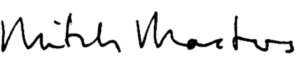 Mitch Masters